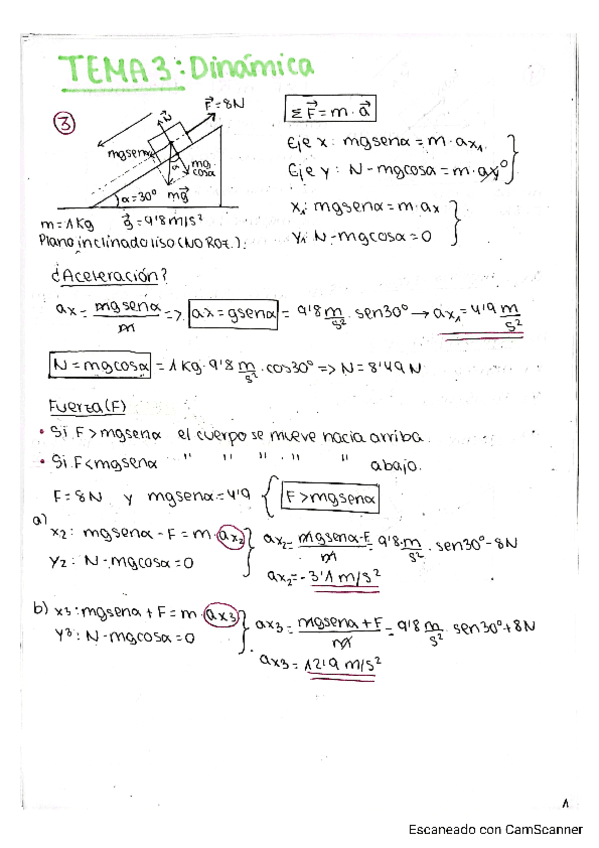 TEMA 3: Dinámica
3
F⃗=8N
N
mgsenα
α
mg
cosα
α=30º
mg⃗
m=1Kg g⃗=9'8m/s²
Plano inclinado liso (NO ROZ.):
ΣF⃗=m·a⃗
Eje x: mgsenα=m·ax₁
Eje y: N-mgcosα=m·ay⁰
x₁: mgsenα=m·ax
y₁: N-mgcosα=0
¿Aceleración?
ax=mgsenα/m => ax=gsenα = 9'8 m/s² · sen30º → ax₁=4'9 m/s²
N=mgcosα = 1Kg·9'8 m/s² · cos30º => N=8'49N
Fuerza(F)
• Si F>mgsenα el cuerpo se mueve hacia arriba.
• Si F<mgsenα " " " " " abajo.
F=8N y mgsenα=4'9 { F>mgsenα
a)
x2: mgsenα-F=m·ax2
y2: N-mgcosα=0
ax2=mgsenα-F/m=9'8 m/s² · sen30º-8N
ax2=-3'1 m/s²
b) x3: mgsenα+F=m·ax3
y3: N-mgcosα=0
ax3=mgsenα+F/m=9'8 m/s² sen30º+8N
ax3=12'9 m/s²
1
Escaneado con CamScanner